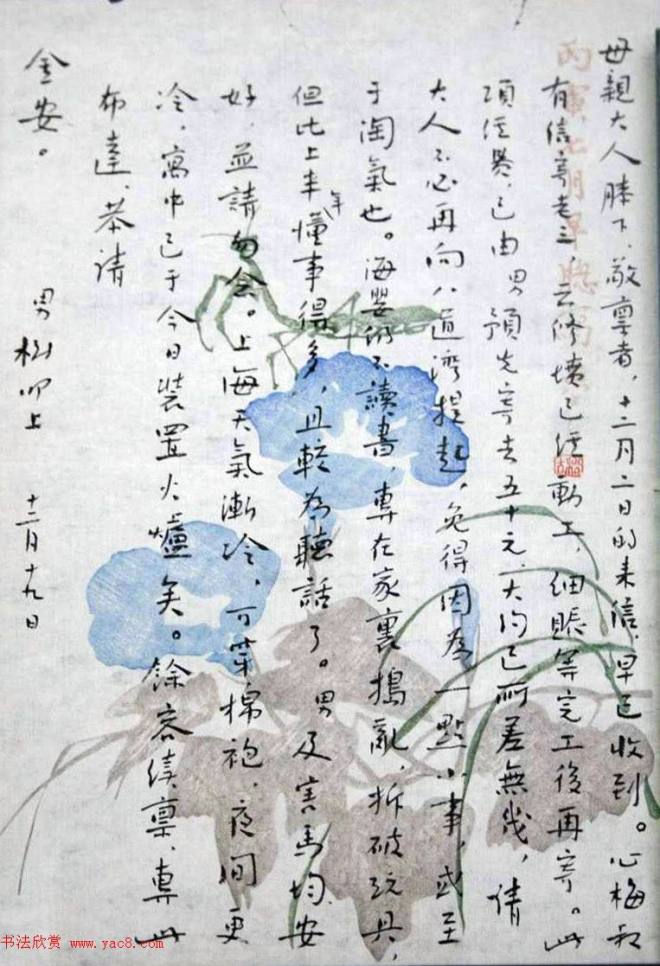 母親大人膝下,敬稟者,十二月二日的来信,早已收到。心梅叔
有信寄老三,云修墳已經動工,細賬等完工後再寄。此
項经費,已由男預先寄去五十元,大約已所差無幾,請
大人不必再向八道灣提起,免得因为一點小事,或至
于淘氣也。海嬰仍不讀書,專在家裏搗亂,拆破玩具,
但比上半年懂事得多,且較为聽話了。男及害馬均安
好,並請勿念。上海天氣漸冷,可穿棉袍,夜间更
冷,寓中已于今日裝置火爐矣。餘容续稟,專此
布達,恭請
金安。
男樹叩上 十二月十九日
丙寅七月
书法欣赏 www.yac8.com